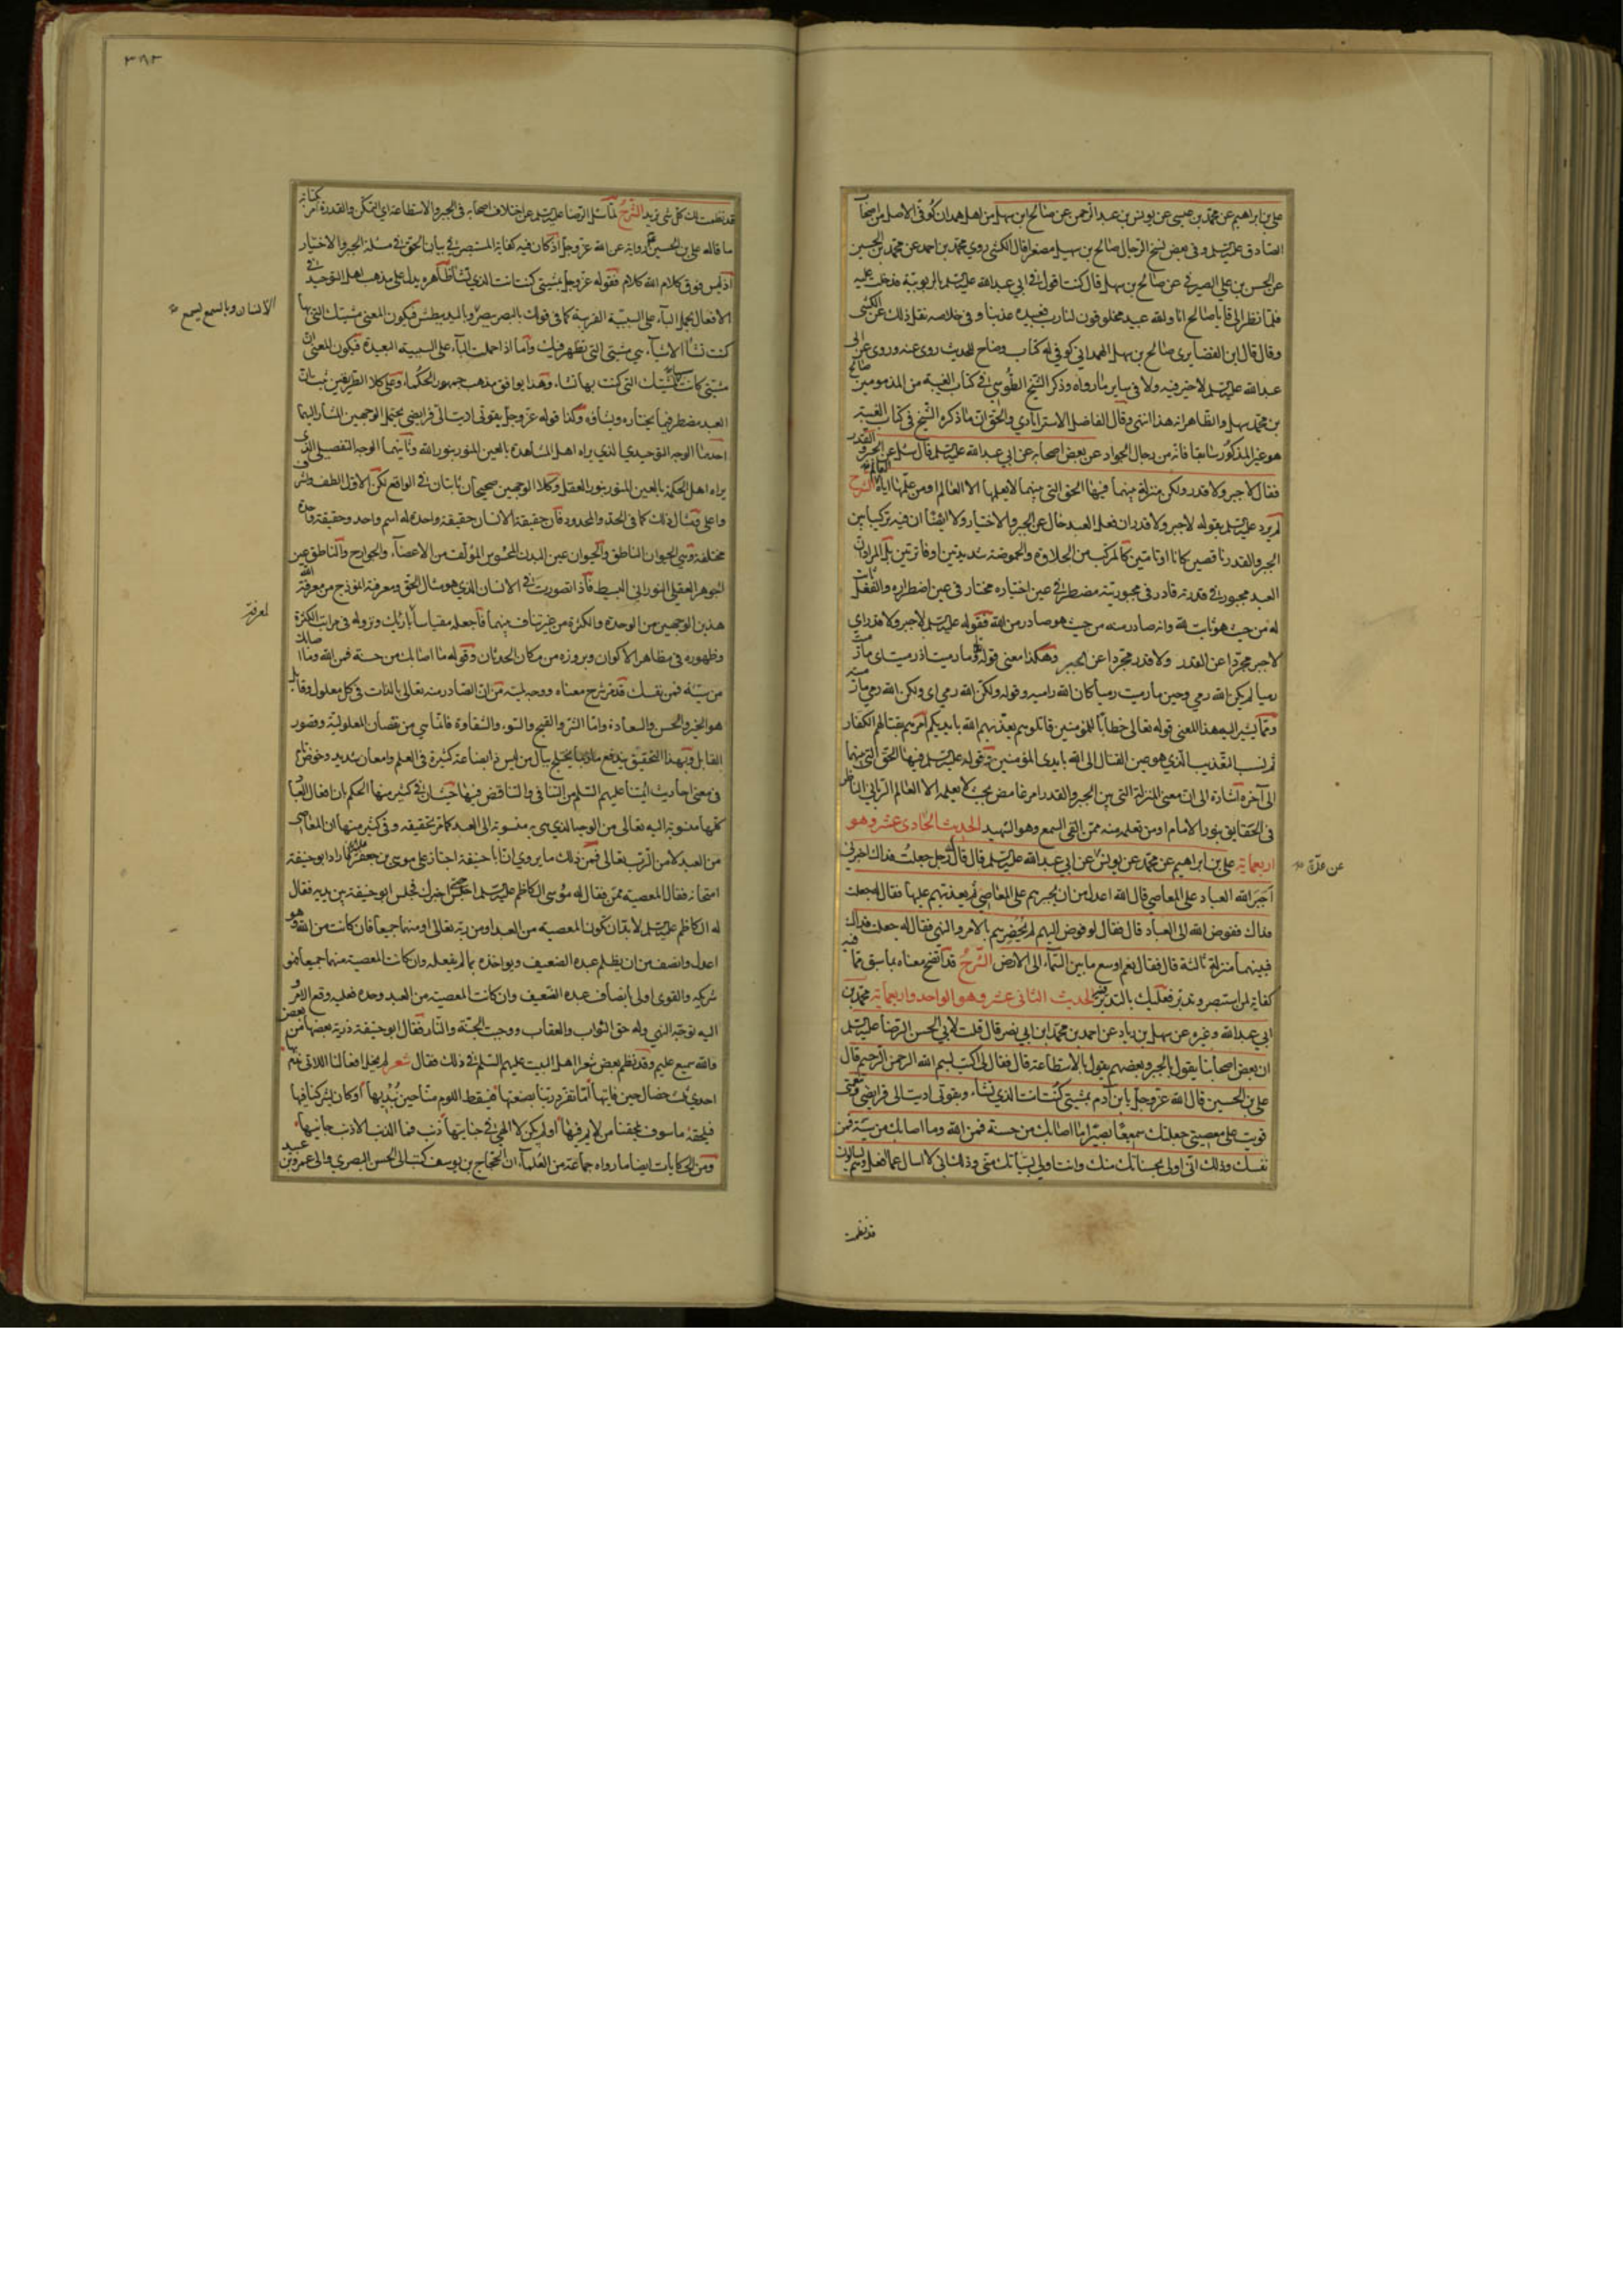 علي بن ابراهيم عن محمد بن عيسى عن يونس بن عبد الرحمن عن صالح بن سهل من اهل همدان كوفي الاصل من اصحاب
الصادق عليه السلم وفي بعض نسخ الرجال صالح بن سهيل مصغرا قال الكشي روى محمد بن احمد عن محمد بن الحسين
عن الحسن بن علي الصيرفي عن صالح بن سهل قال كنت اقول في ابي عبد الله عليه السلم بالربوبية فدخلت عليه
فلما نظر الي قال يا صالح انا والله عبيد مخلوقون لنا رب نعبده وفي خلاصه نقل ذلك عن الكشي
وقال قال ابن الغضايري صالح بن سهل الهمداني كوفي وضاع للحديث روى عن ابي
عبد الله عليه السلم لا خير فيه ولا في ساير ما رواه وذكر الشيخ الطوسي في كتاب الغيبة من المذمومين صالح
بن محمد بن سهل والظاهر انه هذا انتهى وقال الفاضل الاسترآبادي والحق ان ما ذكره الشيخ في كتاب الغيبة
هو غير المذكور سابقا فانه من رجال الجواد عن بعض اصحابه عن ابي عبد الله عليه السلم قال سئل عن الجبر والقدر
فقال لا جبر ولا قدر ولكن منزلة بينهما فيها الحق التي بينهما لا يعلمها الا العالم او من علمها اياه العالم الشرح
لم يرد عليه السلم بقوله لا جبر ولا قدر ان فعل العبد خال عن الجبر والاختيار ولا ايضا ان فيه تركيبا من
الجبر والقدر ناقصين كانا او تامين كالمركب من الحلاوة والحموضة شديدتين او فاترتين بل المراد ان
العبد مجبور في قدرته قادر في مجبوريته مضطر في عين اختياره مختار في عين اضطراره والفعل ثابت
له من حيث هو ثابت لله وانه صادر منه من حيث هو صادر من الله فقوله عليه السلم لا جبر ولا قدر اي
لا جبر مجردا عن القدر ولا قدر مجردا عن الجبر وهكذا معنى قوله وما رميت اذ رميت اي ما رميت
رميا لم يكن الله رمي وحين ما رميت رميا كان الله راميه وقوله ولكن الله رمى اي ولكن الله رمى
ومما يشير اليه هذا المعنى قوله تعالى خطابا للمؤمنين قاتلوهم يعذبهم الله بايديكم امرهم بقتالهم الكفار
ثم نسب التعذيب الذي هو عين القتال الى الله بايدي المؤمنين قوله عليه السلم فيها الحق التي بينهما
الى آخره اشارة الى ان معنى المنزلة التي بين الجبر والقدر امر غامض بحيث لا يعلمه الا العالم الرباني الناظر
في الحقايق بنور الامام او من تعلمه منه ممن القى السمع وهو الشهيد الحديث الحادي عشر وهو
اربعماية علي بن ابراهيم عن محمد عن يونس عن ابي عبد الله عليه السلم قال قال له رجل جعلت فداك اخبرني
عن عدة
اجبر الله العباد على المعاصي قال الله اعدل من ان يجبرهم على المعاصي ثم يعذبهم عليها فقال له جعلت
فداك ففوض الله الى العباد قال فقال لو فوض اليهم لم يحصرهم بالامر والنهي فقال له جعلت فداك
فبينهما منزلة ثالثة قال فقال نعم اوسع ما بين السماء الى الارض الشرح قد اتضح معناه بما سبق مما فيه
كفاية لمن استبصر وتدبر فعليك بالتدبر فيه الحديث الثاني عشر وهو الواحد واربعماية محمد بن
ابي عبد الله وغيره عن سهل بن زياد عن احمد بن محمد ابن ابي نصر قال قلت لابي الحسن الرضا عليه السلم
ان بعض اصحابنا يقول بالجبر وبعضهم يقول بالاستطاعة قال فقال لي اكتب بسم الله الرحمن الرحيم قال
علي بن الحسين قال الله عز وجل يا بن آدم بمشيتي كنت انت الذي تشاء وبقوتي اديت الي فرايضي وبنعمتي
قويت على معصيتي جعلتك سميعا بصيرا ما اصابك من حسنة فمن الله وما اصابك من سيئة فمن
نفسك وذلك اني اولى بحسناتك منك وانت اولى بسيئاتك مني وذلك اني لا اسال عما افعل وهم يسالون
قد نظمت
٣٨٢
قد نظمت لك كل شي تريد الشرح لما سئل الرضا عليه السلم عن اختلاف اصحابه في الجبر والاستطاعة اي التمكن والقدرة امر بكتابة
ما قاله علي بن الحسين رواية عن الله عز وجل اذ كان فيه كفاية المستبصر في بيان الحق في مسئلة الجبر والاختيار
اذ ليس فوق كلام الله كلام فقوله عز وجل بمشيتي كنت انت الذي تشاء ظاهره يدل على مذهب اهل التوحيد في
الافعال بحمل الباء على السببية القريبة كما في قولك بالبصر يبصر وباليد يبطش فيكون المعنى مشيتك التي بها
الانسان وبالسمع يسمع
كنت تشأ الاشياء هي مشيتي التي تظهر فيك واما اذا حملت الباء على السببية البعيدة فيكون المعنى ان
مشيتي كانت سابقة مشيتك التي كنت بها تشاء وهذا يوافق مذهب جمهور الحكماء وعلى كلا الطريقين ثبت ان
العبد مضطر فيما يختاره ويشأوه وكذا قوله عز وجل بقوتي اديت الي فرايضي يحتمل الوجهين المشار اليهما
احدهما الوجه التوحيدي الذي يراه اهل المشاهدة بالعين المنور بنور الله وثانيهما الوجه التفصيلي الذي
يراه اهل الحكمة بالعين المنور بنور العقل وكلا الوجهين صحيحان ثابتان في الواقع لكن الاول الطف واشرف
واعلى ومثال ذلك كما في الحد والمحدود فان حقيقة الانسان حقيقة واحدة له اسم واحد وحقيقة واحدة
مختلفة وهي الحيوان الناطق والحيوان عين البدن المحسوس المؤلف من الاعضاء والجوارح والناطق عين
الجوهر العقلي النوراني البسيط فاذا تصورت في الانسان الذي هو مثال الحق ومعرفته انموذج من معرفة الله
هذين الوجهين من الوحدة والكثرة من غير تناف بينهما فاجعله مقياسا بارئك ونزوله في مراتب الكثرة
لمعرفة
وظهوره في مظاهر الاكوان وبروزه من مكان الحدثان وقوله ما اصابك من حسنة فمن الله وما اصابك
من سيئة فمن نفسك قد مر شرح معناه ووجه لميته من ان الصادر منه تعالى بالذات في كل معلول وقابل
هو الخير والحسن والسعادة واما الشر والقبيح والسوء والشقاوة فانما هي من نقصان المعلولية وقصور
القابل وبهذا التحقيق يندفع ما ربما يختلج ببال من ليس ذا بضاعة كثيرة في العلم وامعان شديد وخوض تام
في معنى احاديث ائمتنا عليهم السلم من التنافي والتناقض فيها حيث ان في كثير منها الحكم بان افعال العباد
كلها منسوبة اليه تعالى من الوجه الذي هي به منسوبة الى العبد كما مر تحقيقه وفي كثير منها ان المعاصي
من العبد لا من الرب تعالى فمن ذلك ما يروى ان ابا حنيفة اجتاز على موسى بن جعفر فاراد ابو حنيفة
امتحانه فقال المعصية ممن فقال له موسى الكاظم عليه السلم اجلس حتى اخبرك فجلس ابو حنيفة بين يديه فقال
له الكاظم عليه السلم لا بد ان تكون المعصية من العبد او من ربه تعالى او منهما جميعا فان كانت من الله فهو
اعدل وانصف من ان يظلم عبده الضعيف ويواخذه بما لم يفعله وان كانت المعصية منهما جميعا فهو
شريكه والقوى اولى بانصاف عبده الضعيف وان كانت المعصية من العبد وحده فعليه وقع الامر و
اليه توجه النهي وله حق الثواب والعقاب ووجبت الجنة والنار فقال ابو حنيفة ذرية بعضها من بعض
والله سميع عليم وقد نظم بعض شعرا اهل البيت عليهم السلم في ذلك فقال شعر لم يخل افعالنا اللاتي نذم بها
احدى ثلث خصال حين فايتها اما تفرد ربنا بصنعتها فيسقط اللوم منا حين نبديها او كان يشركنا فيها
فيلحقه ما سوف يلحقنا من لايم فيها او لم يكن لا الهي في جنايتها ذنب فما الذنب الا ذنب جانيها
ومن الحكايات ايضا ما رواه جماعة من العلماء ان الحجاج بن يوسف كتب الى الحسن البصري والى عمرو بن عبيد